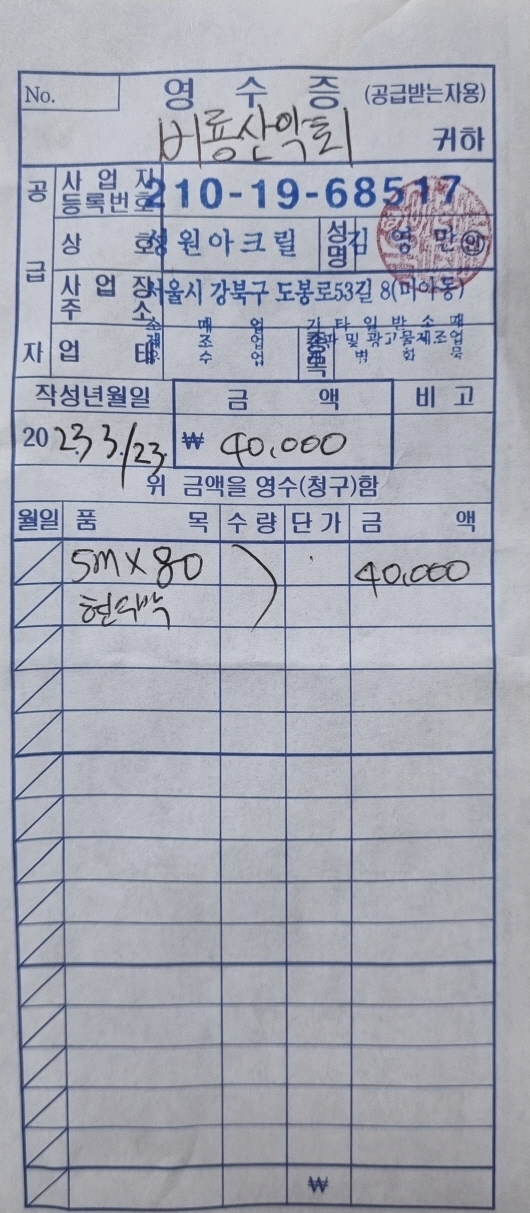 No. 영 수 증 (공급받는자용)
버룡산악회 귀하
공 급 자
사 업 자 등록번호 210-19-68517
상 호 원아크릴 성명 김 영 만 인
사 업 장 주 소 서울시 강북구 도봉로53길 8(미아동)
업 태 소 매 업 종목 기 타 일 반 소 매
제 조 업 간판 및 광고물제조업
작성년월일 금 액 비 고
20 23 3/23. ₩ 40,000
위 금액을 영수(청구)함
월일 품 목 수량 단가 금 액
5M X 80 40,000
현수막
₩